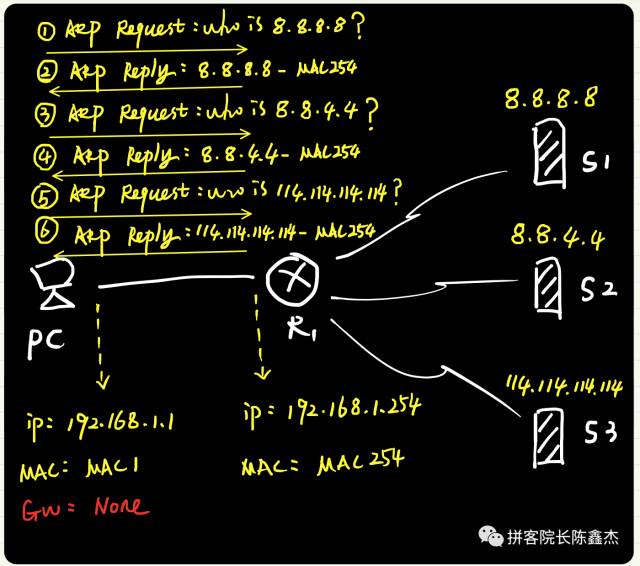 ① ARP Request: who is 8.8.8.8?
② ARP Reply: 8.8.8.8 - MAC254
③ ARP Request: who is 8.8.4.4?
④ ARP Reply: 8.8.4.4 - MAC254
⑤ ARP Request: who is 114.114.114.114?
⑥ ARP Reply: 114.114.114.114 - MAC254
8.8.8.8
S1
8.8.4.4
S2
PC
R1
114.114.114.114
S3
ip= 192.168.1.1
MAC= MAC1
GW= None
ip= 192.168.1.254
MAC= MAC254
拼客院长陈鑫杰